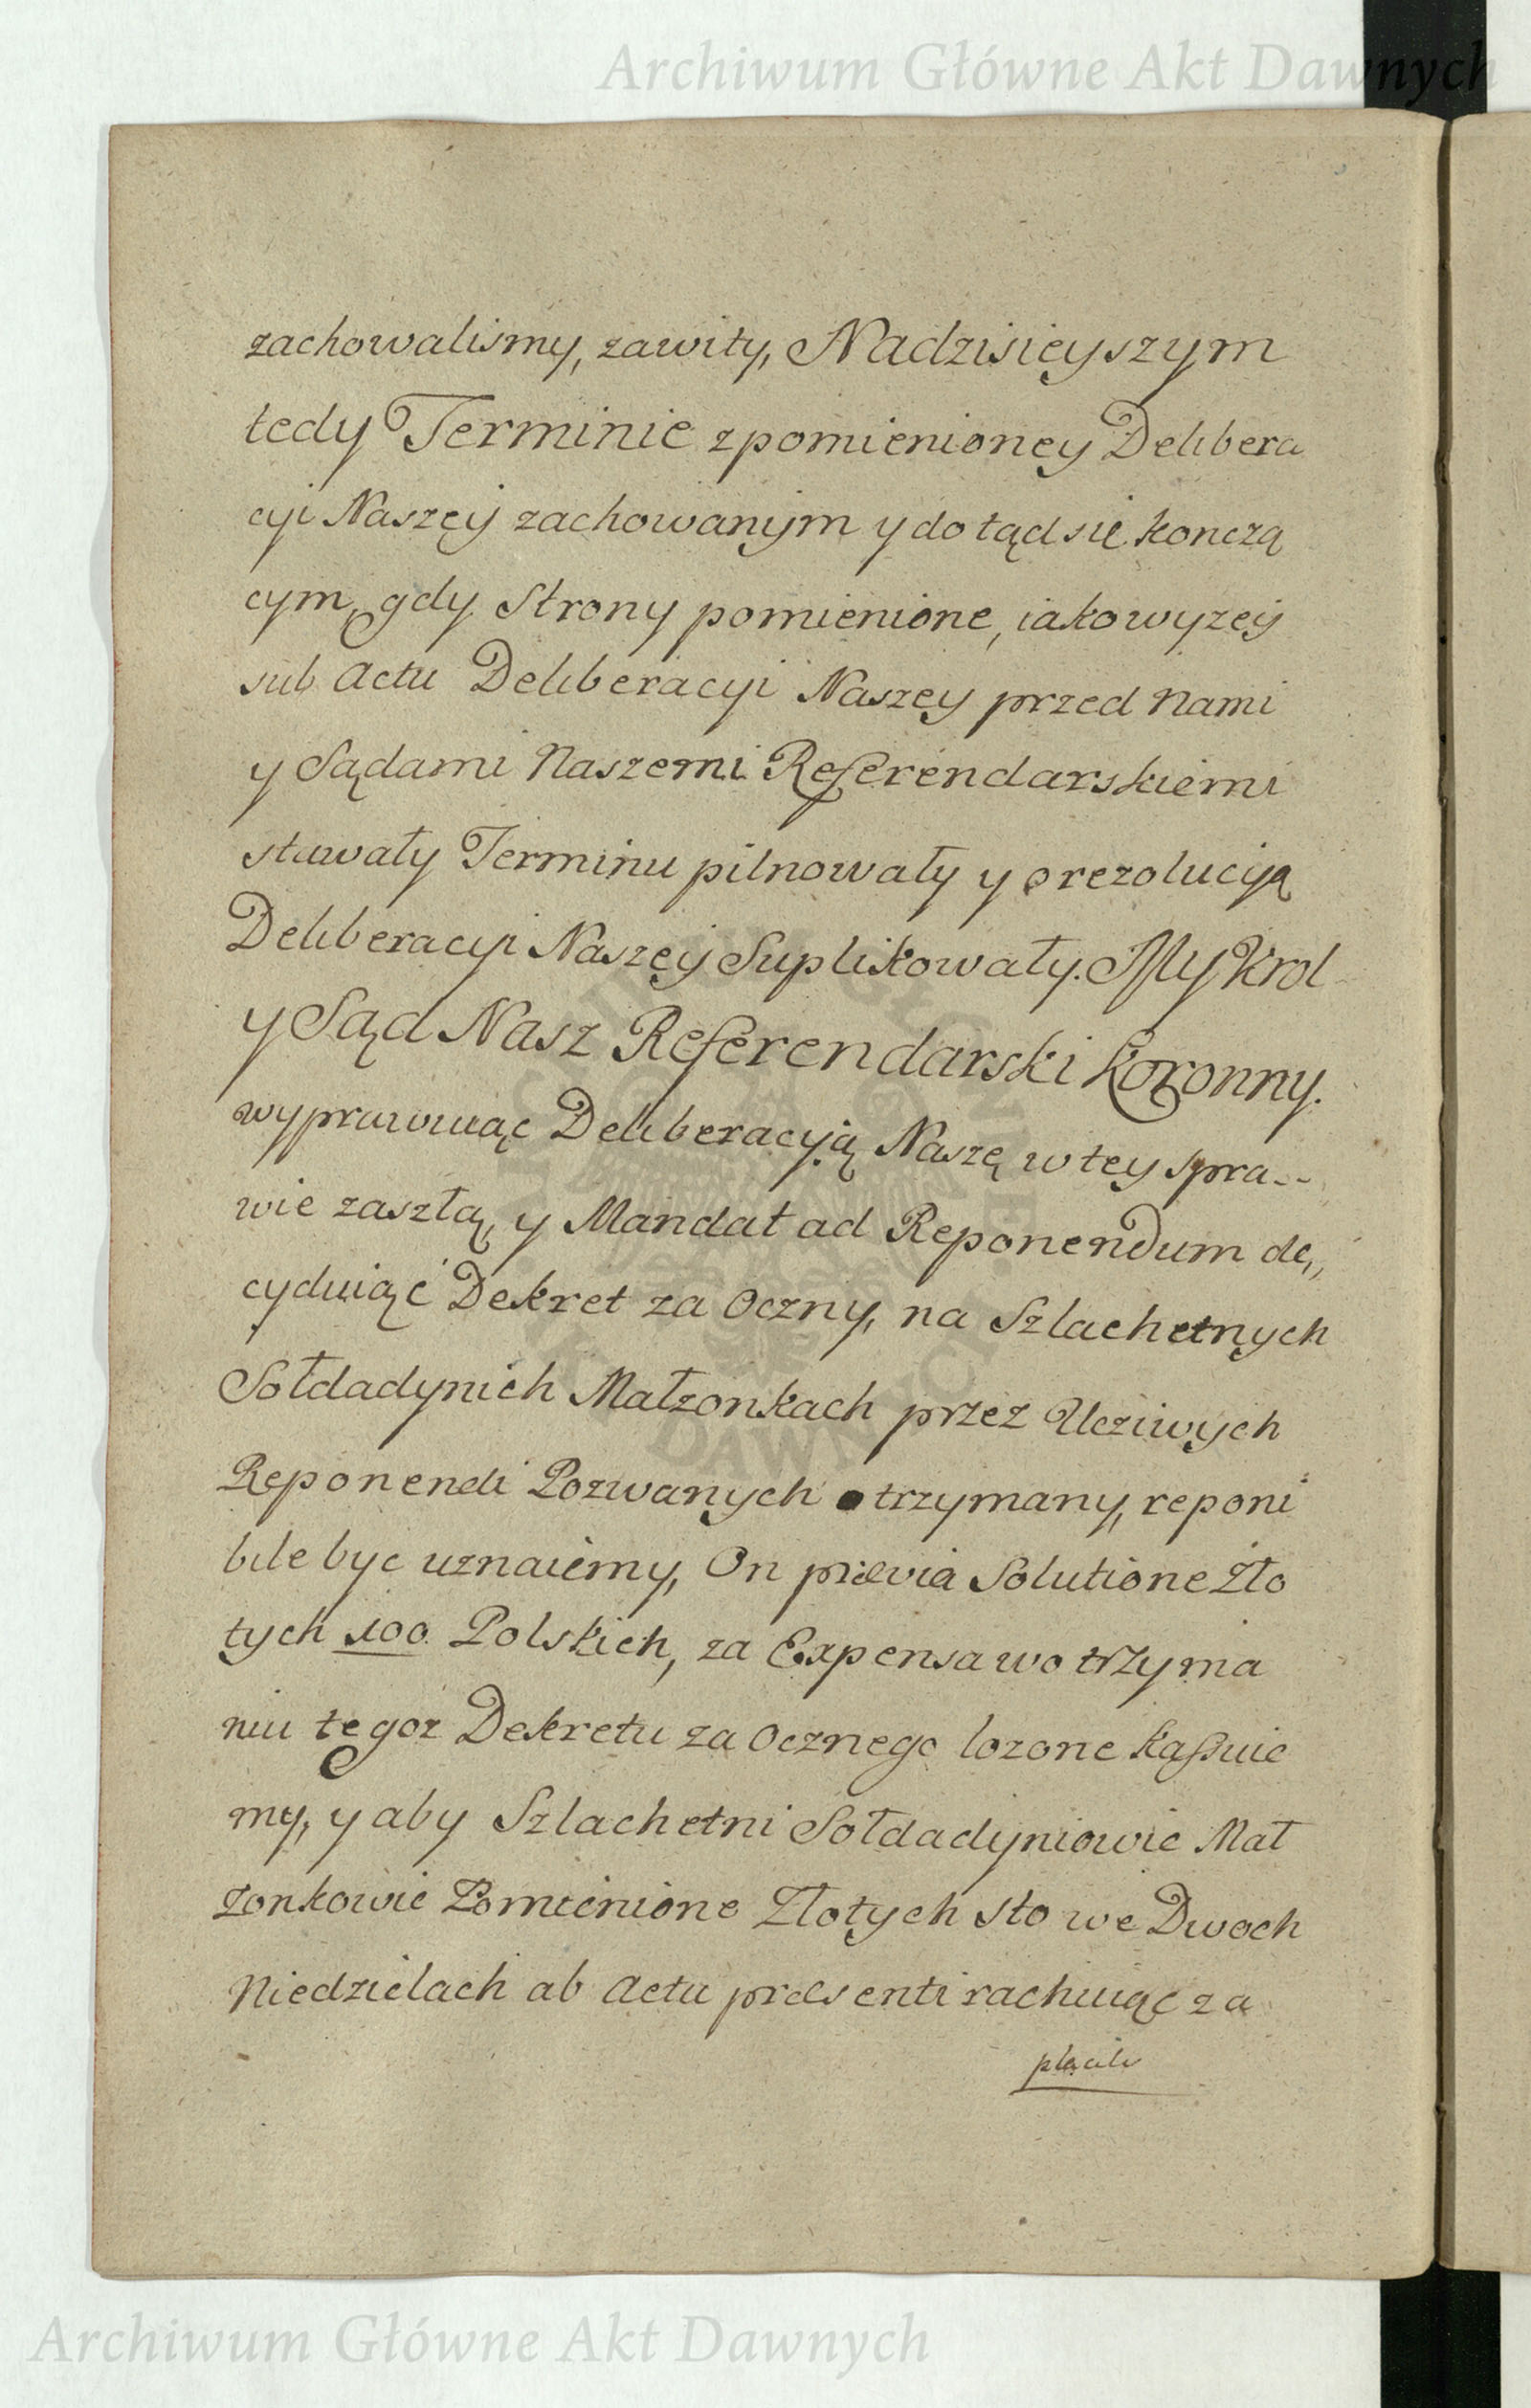 Archiwum Główne Akt Dawnych
zachowalismy, zawity, Nadzisięyszym
tedy Terminie zpomienioney Delibera
cyi Naszęy zachowanym y do tąd się konczą
cym, gdy Strony pomienione, iako wyzey
sub actu Deliberacyi Naszey przed Nami
y Sądami Naszemi Referendarskiemi
stawały Terminu pilnowały y o rezolucyą
Deliberacyi Naszęy Suplikowały. My Krol
y Sąd Nasz Referendarski Koronny.
wyprawuiąc Deliberacyią Naszę w tey spra--
wie zaszłą, y Mandat ad Reponendum de,,
cyduiąc Dekret za Oczny, na Szlachetnych
Sołdadynich Małzonkach przez Ucziwych
Reponendi Pozwanych otrzymany, reponi
bile byc uznaiemy, On prævia Solutione Zło
tych 100. Polskich, za Expensa w otrzyma
niu tęgoz Dekretu za Ocznego lozone kassuie
my, y aby Szlachetni Sołdadyniowie Mał
zonkowie Pomienione Złotych sto we Dwoch
Niedzielach ab actu præsenti rachuiąc za
płacili
ARCHIWUM GŁÓWNE AKT DAWNYCH
Archiwum Główne Akt Dawnych